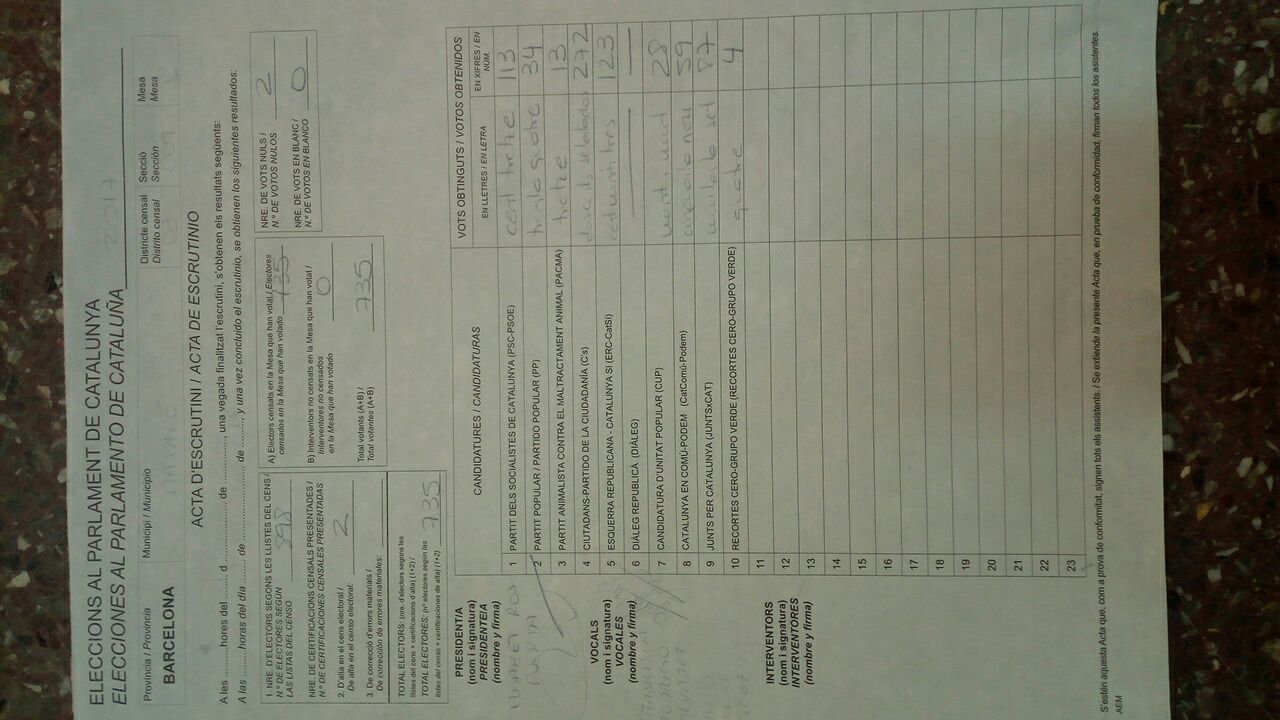 ELECCIONS AL PARLAMENT DE CATALUNYA
ELECCIONES AL PARLAMENTO DE CATALUÑA 2017
Província / Provincia
BARCELONA
Municipi / Municipio
Districte censal
Distrito censal
Secció
Sección
Mesa
Mesa
ACTA D'ESCRUTINI / ACTA DE ESCRUTINIO
A les ..........hores del ........ d ................. de ..............., una vegada finalitzat l'escrutini, s'obtenen els resultats següents:
A las ..........horas del día ........ de ................. de ........., y una vez concluido el escrutinio, se obtienen los siguientes resultados:
1. NRE. D'ELECTORS SEGONS LES LLISTES DEL CENS /
Nº DE ELECTORES SEGÚN
LAS LISTAS DEL CENSO
NRE. DE CERTIFICACIONS CENSALS PRESENTADES /
Nº DE CERTIFICACIONES CENSALES PRESENTADAS
2. D'alta en el cens electoral /
De alta en el censo electoral: 2
3. De correcció d'errors materials /
De corrección de errores materiales:
TOTAL ELECTORS: (nre. d'electors segons les
llistes del cens + certificacions d'alta) (1+2) /
TOTAL ELECTORES: (nº electores según las
listas del censo + certificaciones de alta) (1+2) 735
A) Electors censats en la Mesa que han votat / Electores
censados en la Mesa que han votado 735
B) Interventors no censats en la Mesa que han votat /
Interventores no censados
en la Mesa que han votado 0
Total votants (A+B) /
Total votantes (A+B) 735
NRE. DE VOTS NULS /
N.º DE VOTOS NULOS 2
NRE. DE VOTS EN BLANC /
N.º DE VOTOS EN BLANCO 0
CANDIDATURES / CANDIDATURAS
VOTS OBTINGUTS / VOTOS OBTENIDOS
EN LLETRES / EN LETRA
EN XIFRES / EN NÚM.
1 PARTIT DELS SOCIALISTES DE CATALUNYA (PSC-PSOE) cent tretze 113
2 PARTIT POPULAR / PARTIDO POPULAR (PP) trenta quatre 34
3 PARTIT ANIMALISTA CONTRA EL MALTRACTAMENT ANIMAL (PACMA) tretze 13
4 CIUTADANS-PARTIDO DE LA CIUDADANÍA (C's) 272
5 ESQUERRA REPUBLICANA - CATALUNYA SÍ (ERC-CatSí) 123
6 DIÀLEG REPUBLICÀ (DIÀLEG) —
7 CANDIDATURA D'UNITAT POPULAR (CUP) vent i vuit 28
8 CATALUNYA EN COMÚ-PODEM (CatComú-Podem) 59
9 JUNTS PER CATALUNYA (JUNTSxCAT) 87
10 RECORTES CERO-GRUPO VERDE (RECORTES CERO-GRUPO VERDE) quatre 4
11
12
13
14
15
16
17
18
19
20
21
22
23
PRESIDENTIA
(nom i signatura)
PRESIDENTEIA
(nombre y firma)
VOCALS
(nom i signatura)
VOCALES
(nombre y firma)
INTERVENTORS
(nom i signatura)
INTERVENTORES
(nombre y firma)
S'estén aquesta Acta que, com a prova de conformitat, signen tots els assistents. / Se extiende la presente Acta que, en prueba de conformidad, firman todos los asistentes.
AEM